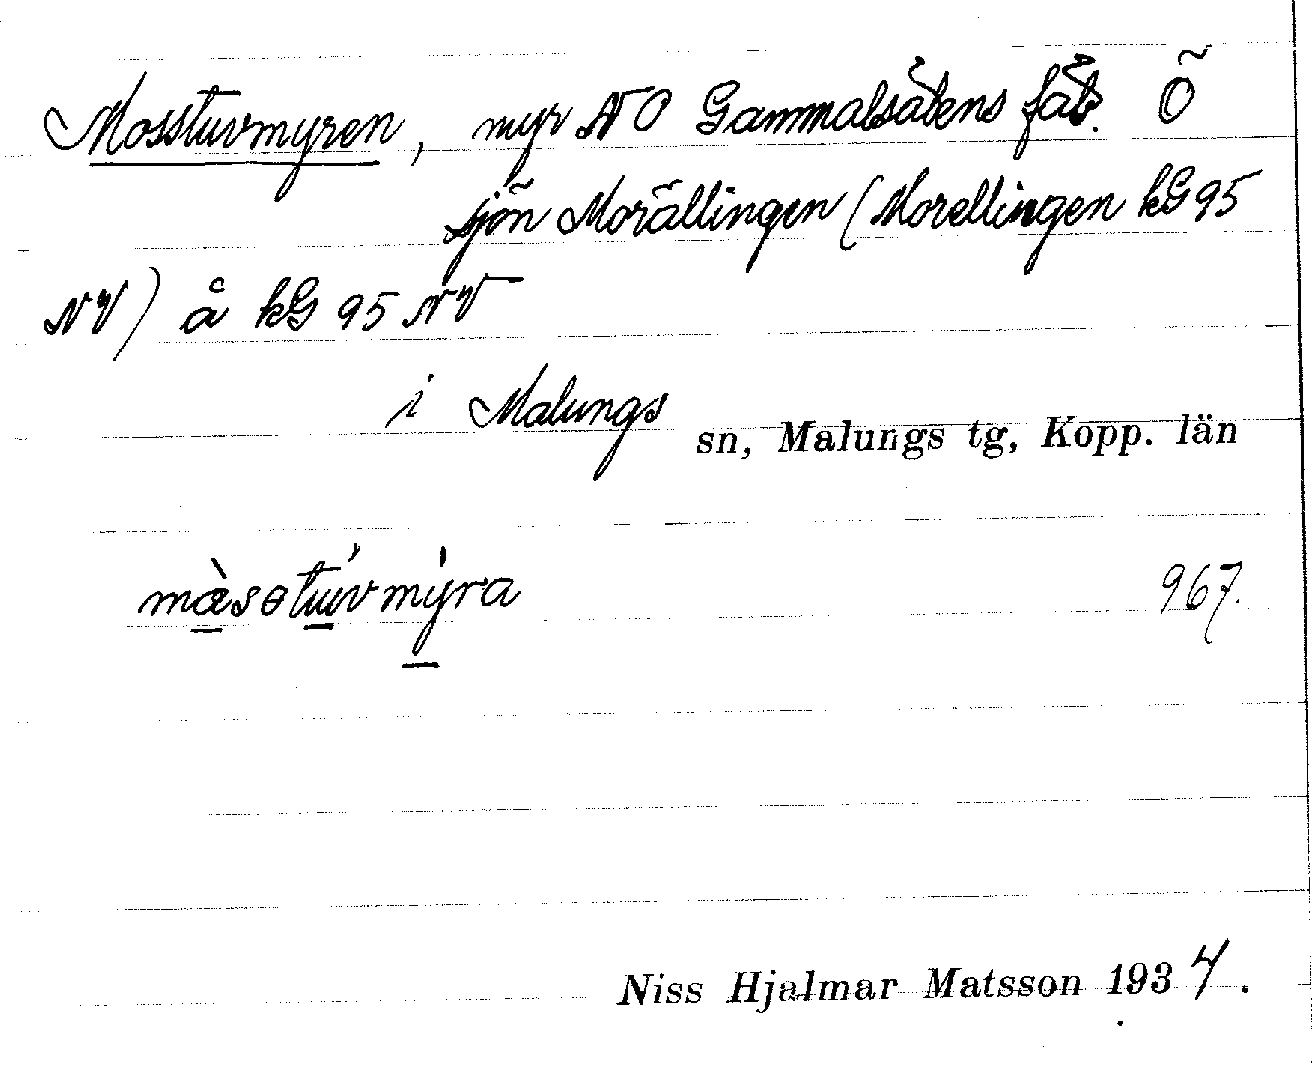 Mosstuvmyren, myr NO Gammalsätens fäb. Ö
sjön Morällingen (Morellingen kG 95
NV) å kG 95 NV
i Malungs sn, Malungs tg, Kopp. län
mòsətùvmýra 967.
Niss Hjalmar Matsson 1934.